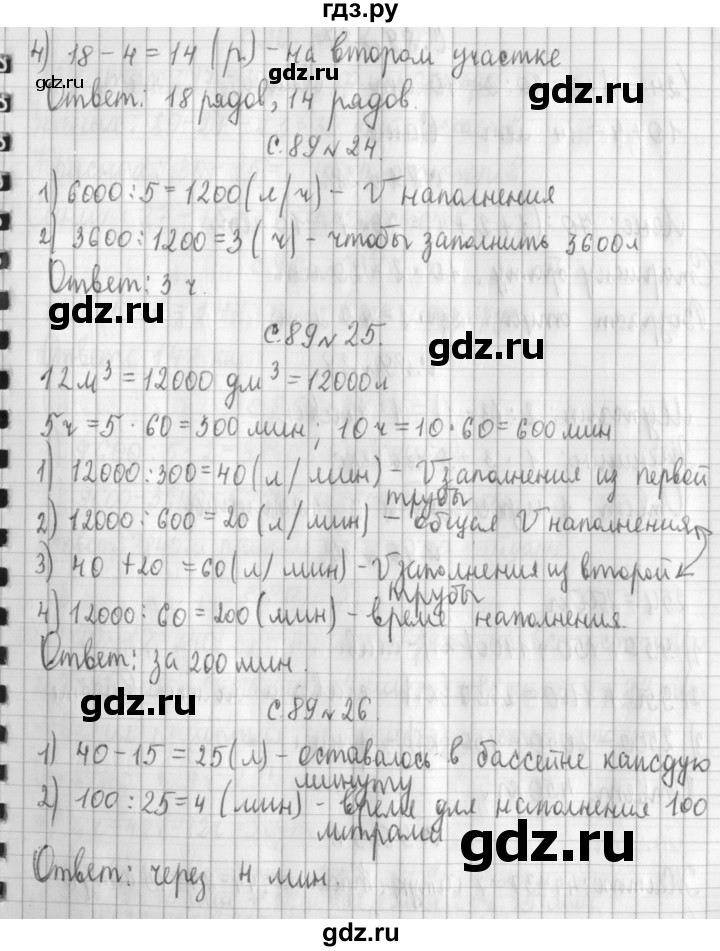 гдз.ру
4) 18 - 4 = 14 (р.) - на втором участке
gdz.ru
gdz.ru
gdz.ru
Ответ: 18 рядов, 14 рядов.
с.89 № 24.
1) 6000 : 5 = 1200 (л/ч) - V наполнения
2) 3600 : 1200 = 3 (ч) - чтобы заполнить 3600 л
Ответ: 3 ч.
gdz.ru
с.89 № 25.
gdz.ru
12 м³ = 12000 дм³ = 12000 л
5 ч = 5 · 60 = 300 мин; 10 ч = 10 · 60 = 600 мин
1) 12000 : 300 = 40 (л/мин) - V заполнения из первой
трубы
2) 12000 : 600 = 20 (л/мин) - общая V наполнения
3) 40 + 20 = 60 (л/мин) - V заполнения из второй
трубы
4) 12000 : 60 = 200 (мин) - время наполнения.
Ответ: за 200 мин.
gdz.ru
gdz.ru
с.89 № 26.
1) 40 - 15 = 25 (л) - оставалось в бассейне каждую
минуту
2) 100 : 25 = 4 (мин) - время для наполнения 100
литрами
gdz.ru
Ответ: через 4 мин.
gdz.ru
gdz.ru